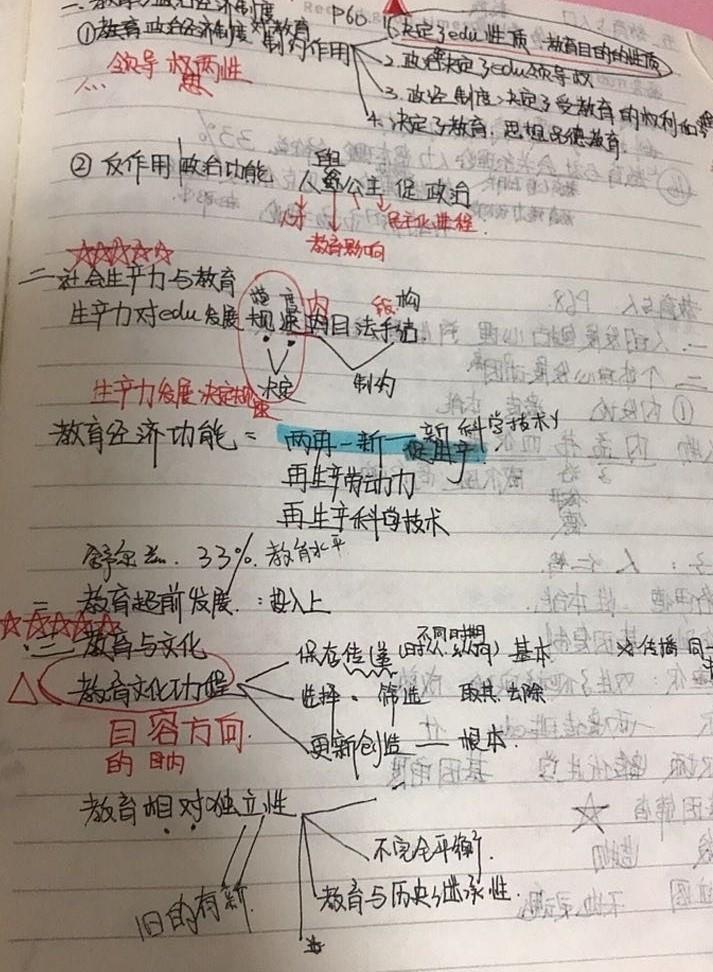 一. 教育与政治经济制度
P60
①教育政治经济制度对教育制约作用
1.决定了edu性质 教育目的的性质
2.政治决定了edu领导权
3.政经制度决定了受教育的权利
4.决定了教育. 思想品德教育
领导权两性
思
② 反作用 政治功能 人 公主促政治
人才
教育影响
民主化进程
二社会生产力与教育
生产力对edu发展规速内目法手结
度 内 级构
决定 制约
生产力发展决定规速
教育经济功能 = 两再一新 新科学技术
促生产
再生产劳动力
再生产科学技术
舒尔兹. 33% 教育水平
教育超前发展. :投入上
三 教育与文化
教育文化功能
保存传递 (时代,纵向) 基本
不同时期
传播同一
选择·筛选 取其 去除
更新创造——根本.
目容方向.
的内
教育相对独立性
不完全平衡.
教育与历史继承性.
旧的有新.